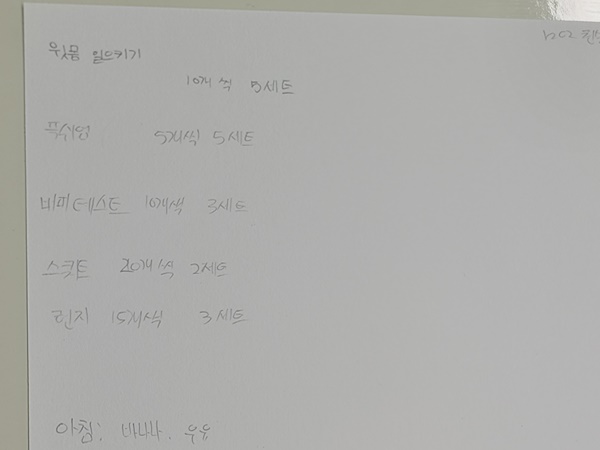 윗몸 일으키기
10개 씩 5세트
푸쉬업 5개씩 5세트
버피테스트 10개씩 3세트
스쿼트 20개씩 2세트
런지 15개씩 3세트
아침: 바나나, 우유